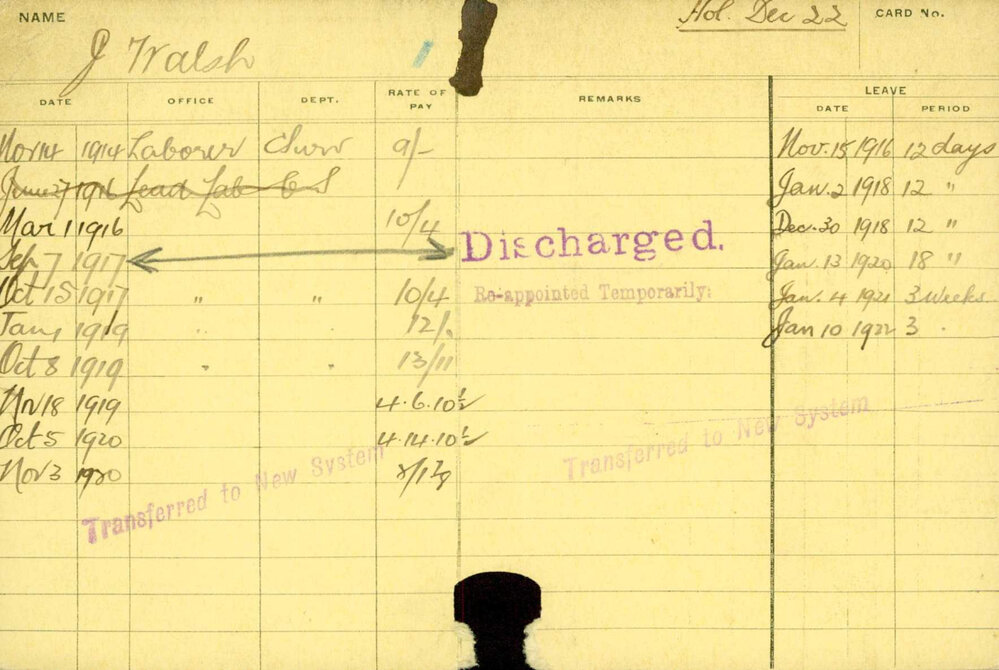 NAME Hol. Dec 22 CARD No.
J Walsh
DATE OFFICE DEPT. RATE OF PAY REMARKS LEAVE
DATE PERIOD
Nov 14 1914 Laborer 9/- Nov. 15 1916 12 days
June 27 1916 Lead Lab C S Jan. 2 1918 12 "
Mar 1 1916 10/4 Dec. 30 1918 12 "
Sep 7 1917 Discharged. Jan. 13 1920 18 "
Oct 15 1917 " " 10/4 Re-appointed Temporarily: Jan. 4 1921 3 weeks
Jan 1 1919 " " 12/. Jan 10 1922 3 "
Oct 8 1919 " " 13/11
Nov 18 1919 4.6.10½
Oct 5 1920 4.14.10½
Nov 3 1920
Transferred to New System
Transferred to New System